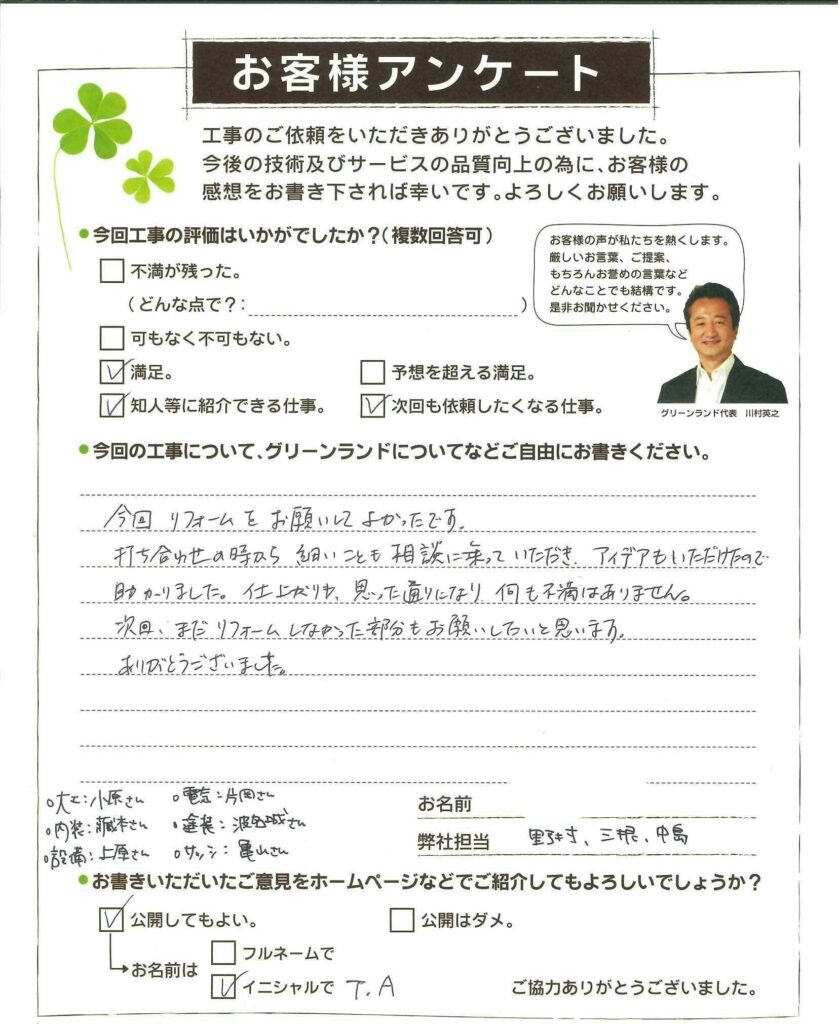 お客様アンケート
工事のご依頼をいただきありがとうございました。
今後の技術及びサービスの品質向上の為に、お客様の
感想をお書き下されば幸いです。よろしくお願いします。
今回工事の評価はいかがでしたか？（複数回答可）
お客様の声が私たちを熱くします。
厳しいお言葉、ご提案、
もちろんお誉めの言葉など
どんなことでも結構です。
是非お聞かせください。
不満が残った。
（どんな点で？：　）
可もなく不可もない。
満足。　予想を超える満足。
知人等に紹介できる仕事。　次回も依頼したくなる仕事。
グリーンランド代表　川村英之
今回の工事について、グリーンランドについてなどご自由にお書きください。
今回 リフォームを お願いして よかったです。
打ち合わせの時から 細いことも 相談に乗って いただき、アイデアもいただけたので
助かりました。仕上がりや、思った通りになり 何も不満はありません。
次回、まだ リフォーム しなかった部分も お願いしたいと思います。
ありがとうございました。
大工：小原さん　電気：片岡さん
内装：藤本さん　塗装：さん
設備：上原さん　サッシ：亀山さん
お名前
弊社担当　野村、三根、中島
お書きいただいたご意見をホームページなどでご紹介してもよろしいでしょうか？
公開してもよい。　公開はダメ。
お名前は　フルネームで
イニシャルで　T.A
ご協力ありがとうございました。